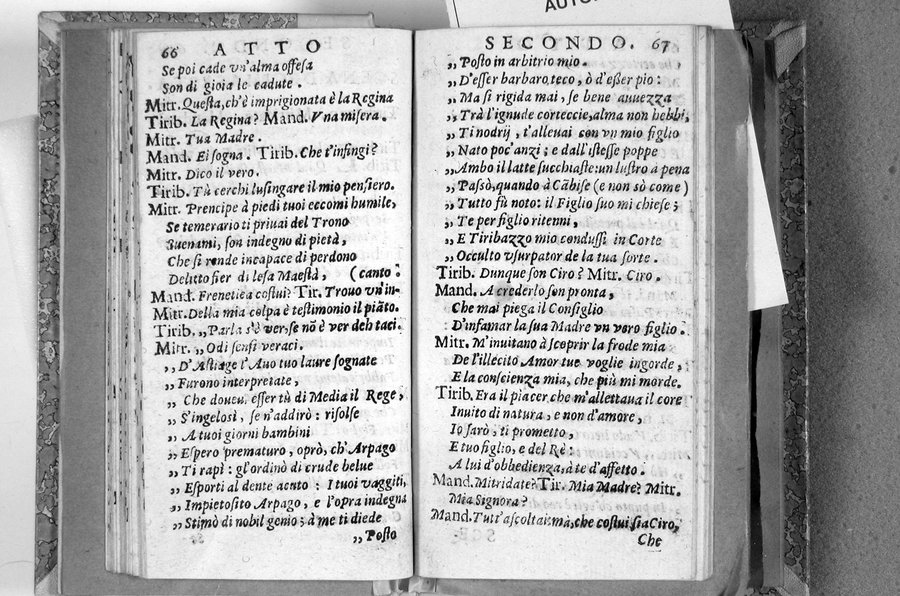 AUTOR
66 ATTO
Se poi cade vn'alma offesa
Son di gioia le cadute.
Mitr. Questa, ch'è imprigionata è la Regina
Tirib. La Regina? Mand. Vna misera.
Mitr. Tua Madre.
Mand. Ei sogna. Tirib. Che t'infingi?
Mitr. Dico il vero.
Tirib. Tù cerchi lusingare il mio pensiero.
Mitr. Prencipe à piedi tuoi eccomi humile,
Se temerario ti priuai del Trono
Suenami, son indegno di pietà,
Che si rende incapace di perdono
Delitto fier di lesa Maestà, (canto:
Mand. Frenetica costui? Tir. Trouo vn'in-
Mitr. Della mia colpa è testimonio il piãto.
Tirib. „Parla s'è ver, se nõ è ver deh taci.
Mitr. „Odi sensi veraci.
„D'Astiage l'Auo tuo laure sognate
„Furono interpretate,
„ Che doueu, esser tù di Media il Rege,
„ S'ingelosì, se n'addirò: risolse
„ A tuoi giorni bambini
„ Espero prematuro, oprò, ch'Arpago
„ Ti rapì: gl'ordinò di crude belue
„ Esporti al dente acuto: I tuoi vaggiti,
„ Impietosito Arpago, e l'opra indegna
„ Stimò di nobil genio; à me ti diede
„ Posto
SECONDO. 67
„ Posto in arbitrio mio.
„ D'esser barbaro teco, ò d'esser pio:
„ Ma sì rigida mai, se bene auuezza
„ Trà l'ignude corteccie, alma non hebbi,
„ Ti nodrij, t'alleuai con vn mio figlio
„ Nato poc'anzi; e dall'istesse poppe
„ Ambo il latte succhiaste: un lustro a pena
„ Passò, quando à Cãbise (e non sò come)
„ Tutto fù noto: il Figlio suo mi chiese;
„ Te per figlio ritenni,
„ E Tiribazzo mio condussi in Corte
„ Occulto vsurpator de la tua sorte.
Tirib. Dunque son Ciro? Mitr. Ciro.
Mand. A crederlo son pronta,
Che mai piega il Consiglio
D'infamar la sua Madre vn vero figlio.
Mitr. M'inuitano à scoprir la frode mia
De l'illecito Amor tue voglie ingorde,
E la conscienza mia, che più mi morde.
Tirib. Era il piacer che m'allettaua il core
Inuito di natura, e non d'amore,
Io sarò, ti prometto,
E tuo figlio, e del Rè:
A lui d'obbedienza, à te d'affetto.
Mand. Mitridate? Tir. Mia Madre? Mitr.
Mia Signora?
Mand. Tutt'ascoltai: mà, che costui sia Ciro,
Che